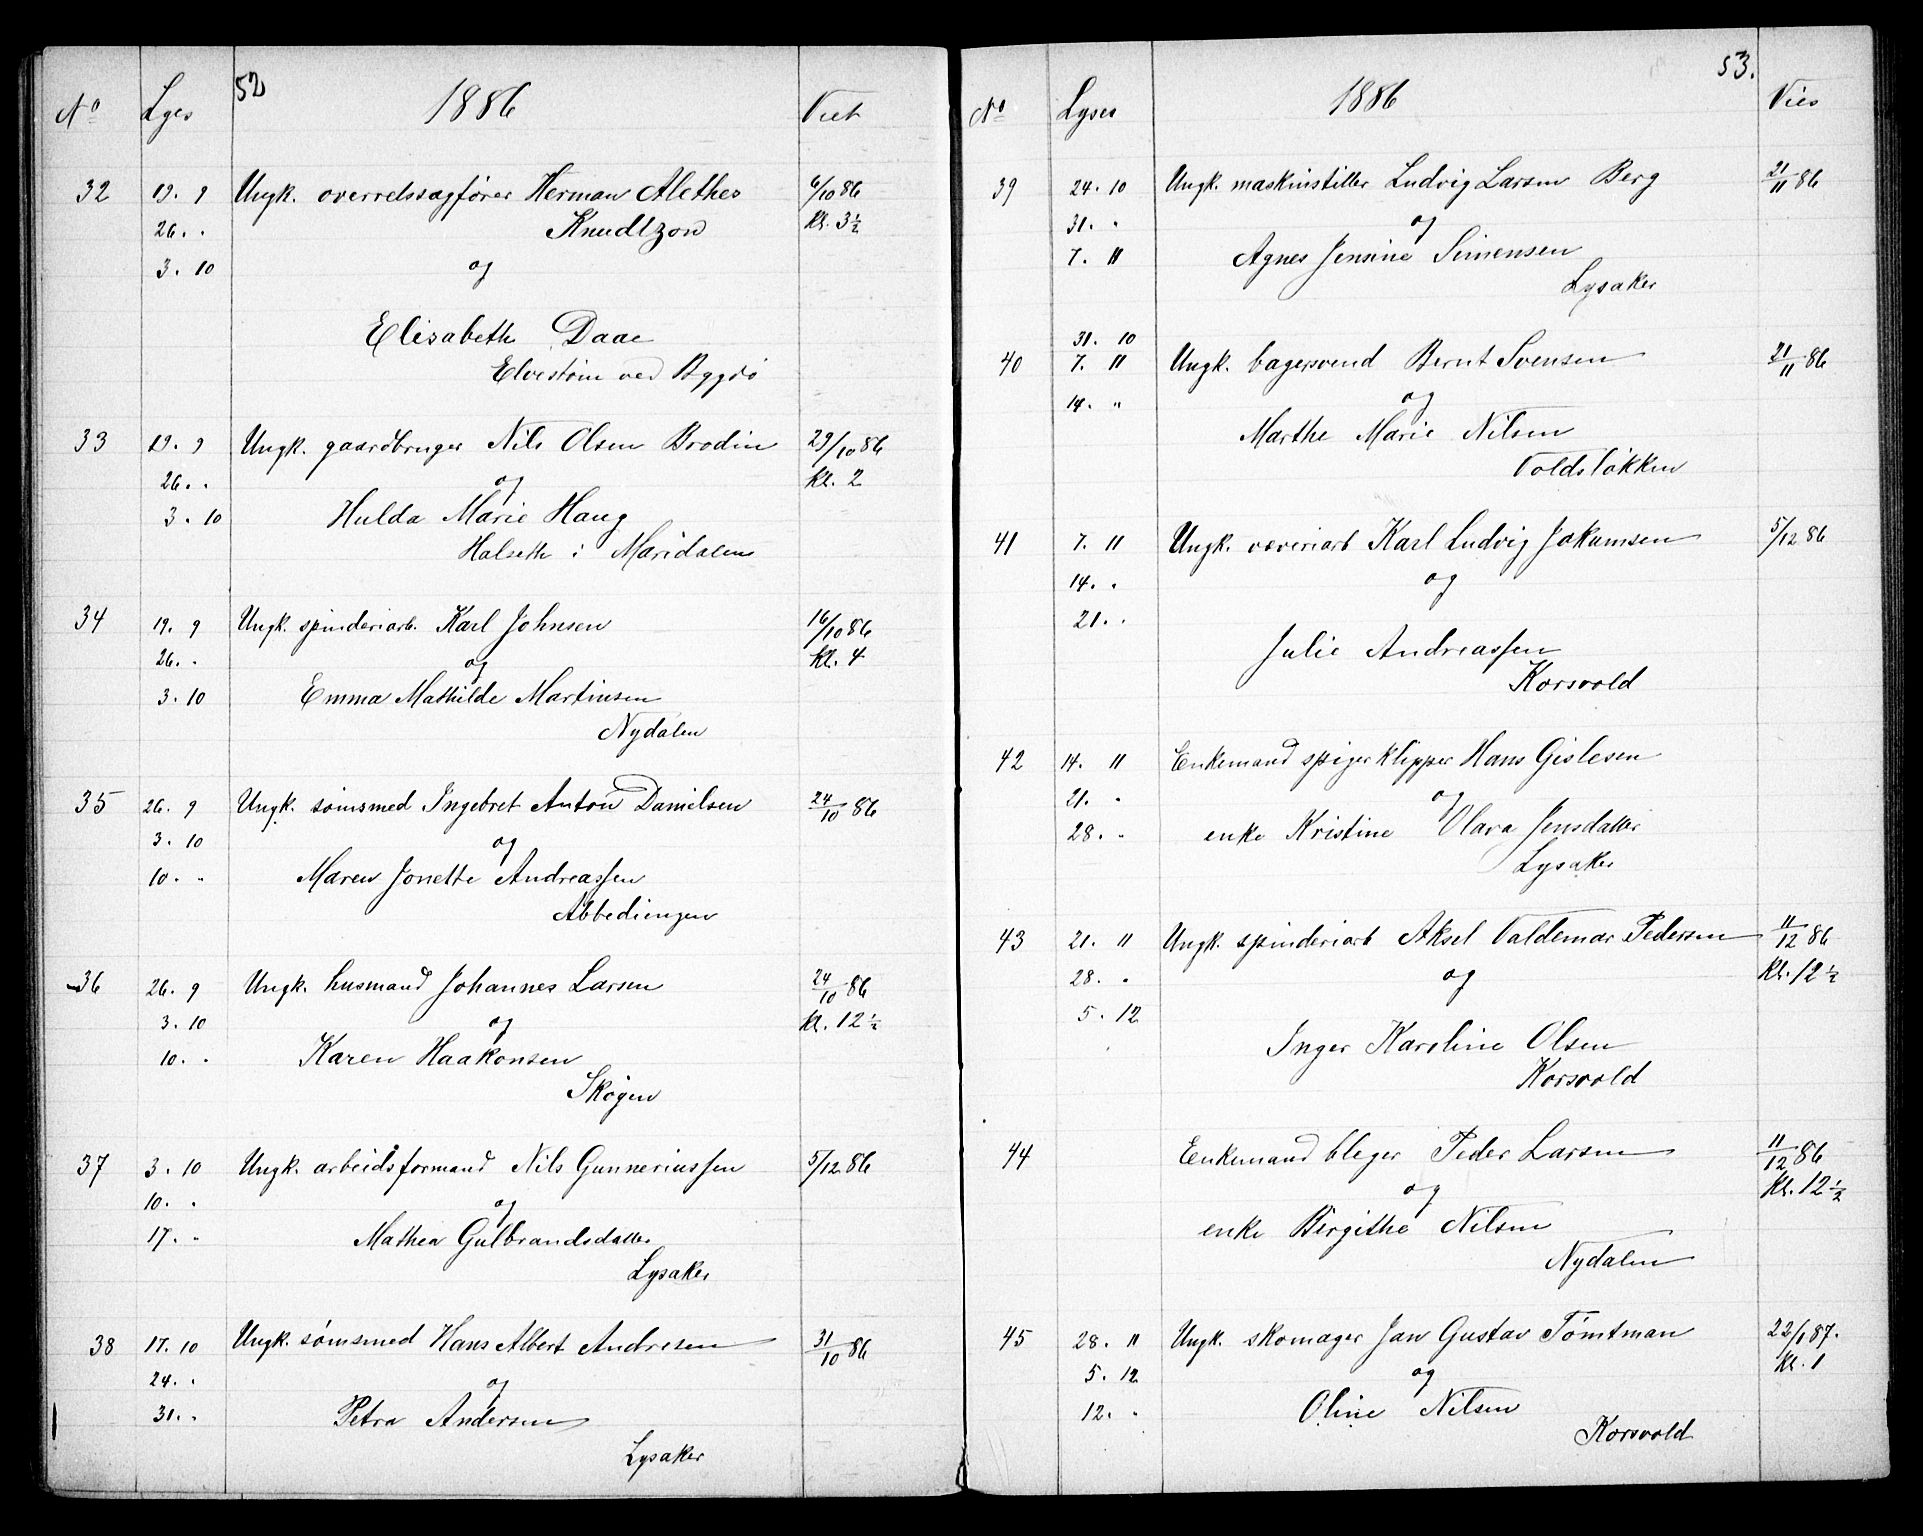 52
No Lyses 1886 Viet
32 19. 9 Ungk. overretssagfører Herman Alethes 6/10 86
26. " Knudtzon Kl. 3½
3. 10 og
Elisabeth Daae
ved Bygdø
33 19. 9 Ungk. gaardbruger Nils Olsen Brodin 29/10 86
26. " og Kl. 2
3. 10 Hulda Marie Haug
Halseth i Maridalen
34 19. 9 Ungk. spinderiarb. Karl Johnsen 16/10 86
26. " og Kl. 4
3. 10 Emma Mathilde Martinsen
Nydalen
35 26. 9 Ungk. sømsmed Ingebret Anton Danielsen 24/10 86
3. 10 og
10. " Maren Jonette Andreassen
Abbediengen
36 26. 9 Ungk. husmand Johannes Larsen 24/10 86
3. 10 og Kl. 12½
10. " Karen Haakonsen
Skøgen
37 3. 10 Ungk. arbeidsformand Nils Gunneriussen 5/12 86
10. " og
17. " Mathea Gulbrandsdatter
Lysaker
38 17. 10 Ungk. sømsmed Hans Albert Andresen 31/10 86
24. " og
31. " Petra Andersen
Lysaker
53.
No Lyses 1886 Vies
39 24. 10 Ungk. maskinstiller Ludvig Larsen Berg 21/11 86
31. " og
7. 11 Agnes Jensine Simensen
Lysaker
31. 10
40 7. 11 Ungk. bagersvend Bernt Svensen 21/11 86
14. " og
Marthe Marie Nilsen
Voldsløkken
41 7. 11 Ungk. væveriarb Karl Ludvig Jokumsen 5/12 86
14. " og
21. "
Julie Andreassen
Korsvold
42 14. 11 Enkemand spigerklipper Hans Gislesen
21. " og
28. " enke Kristine Olava Jensdatter
Lysaker
43 21. 11 Ungk. spinderiarb Aksel Valdemar Pedersen 11/12 86
28. " og Kl. 12½
5. 12
Inger Karoline Olsen
Korsvold
44 Enkemand bleger Peder Larsen 11/12 86
og Kl. 12½
enke Birgithe Nilsen
Nydalen
45 28. 11 Ungk. skomager Jan Gustav Tømtman 22/1 87.
5. 12 og Kl. 1
12. " Oline Nilsen
Korsvold